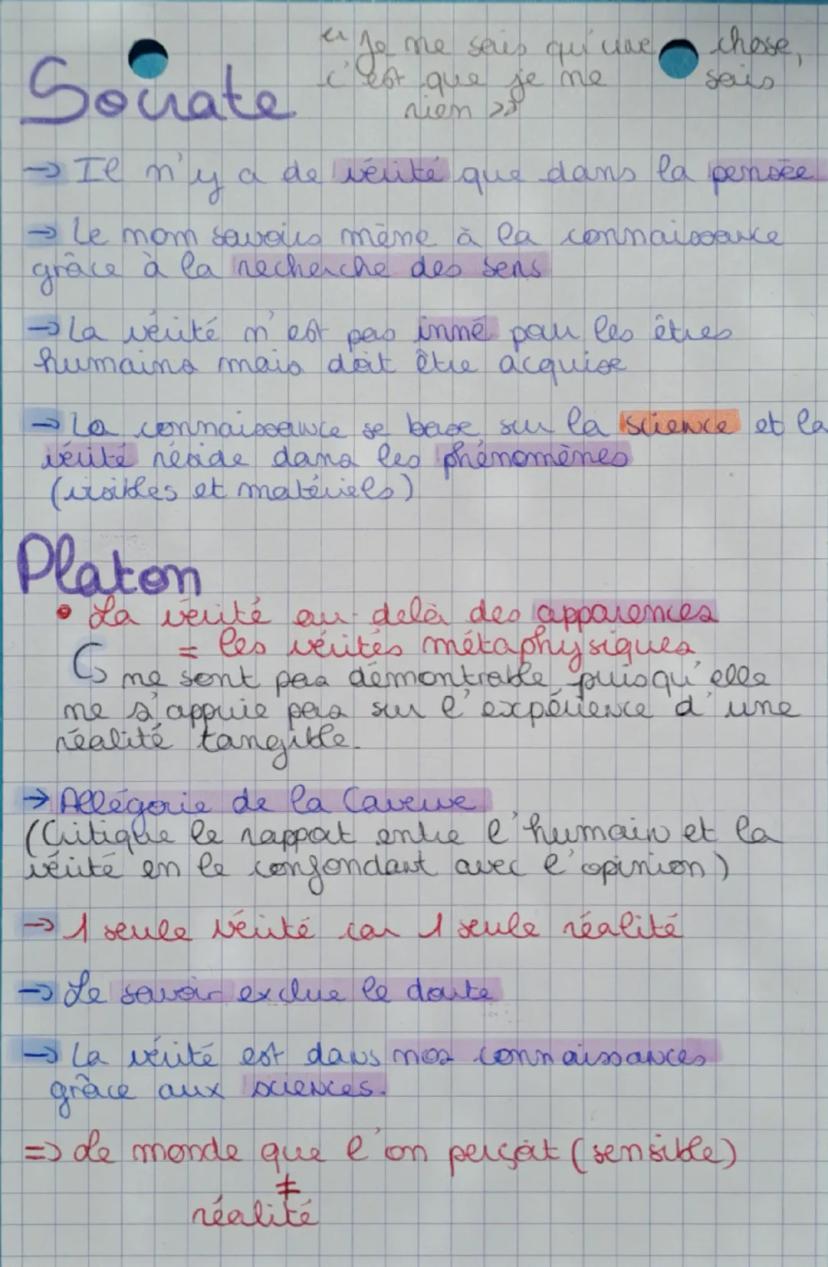 « Je ne sais qu'une chose,
c'est que je ne sais
rien »
Socrate
→ Il n'y a de vérité que dans la pensée
→ Le non savoirs mène à la connaissance
grâce à la recherche des sens
→ La vérité n'est pas inné pour les êtres
humains mais doit être acquise
→ La connaissance se base sur la science et la
vérité réside dans les phénomènes
(visibles et matériels)
Platon
• La vérité au-delà des apparences
= les vérités métaphysiques
↳ ne sont pas démontrable puisqu'elle
ne s'appuie pas sur l'expérience d'une
réalité tangible.
→ Allégorie de la Caverne
(Critique le rapport entre l'humain et la
vérité en le confondant avec l'opinion)
→ 1 seule vérité car 1 seule réalité
→ Le savoir exclue le doute
→ La vérité est dans nos connaissances
grâce aux sciences.
=> Le monde que l'on perçoit (sensible)
≠
réalité